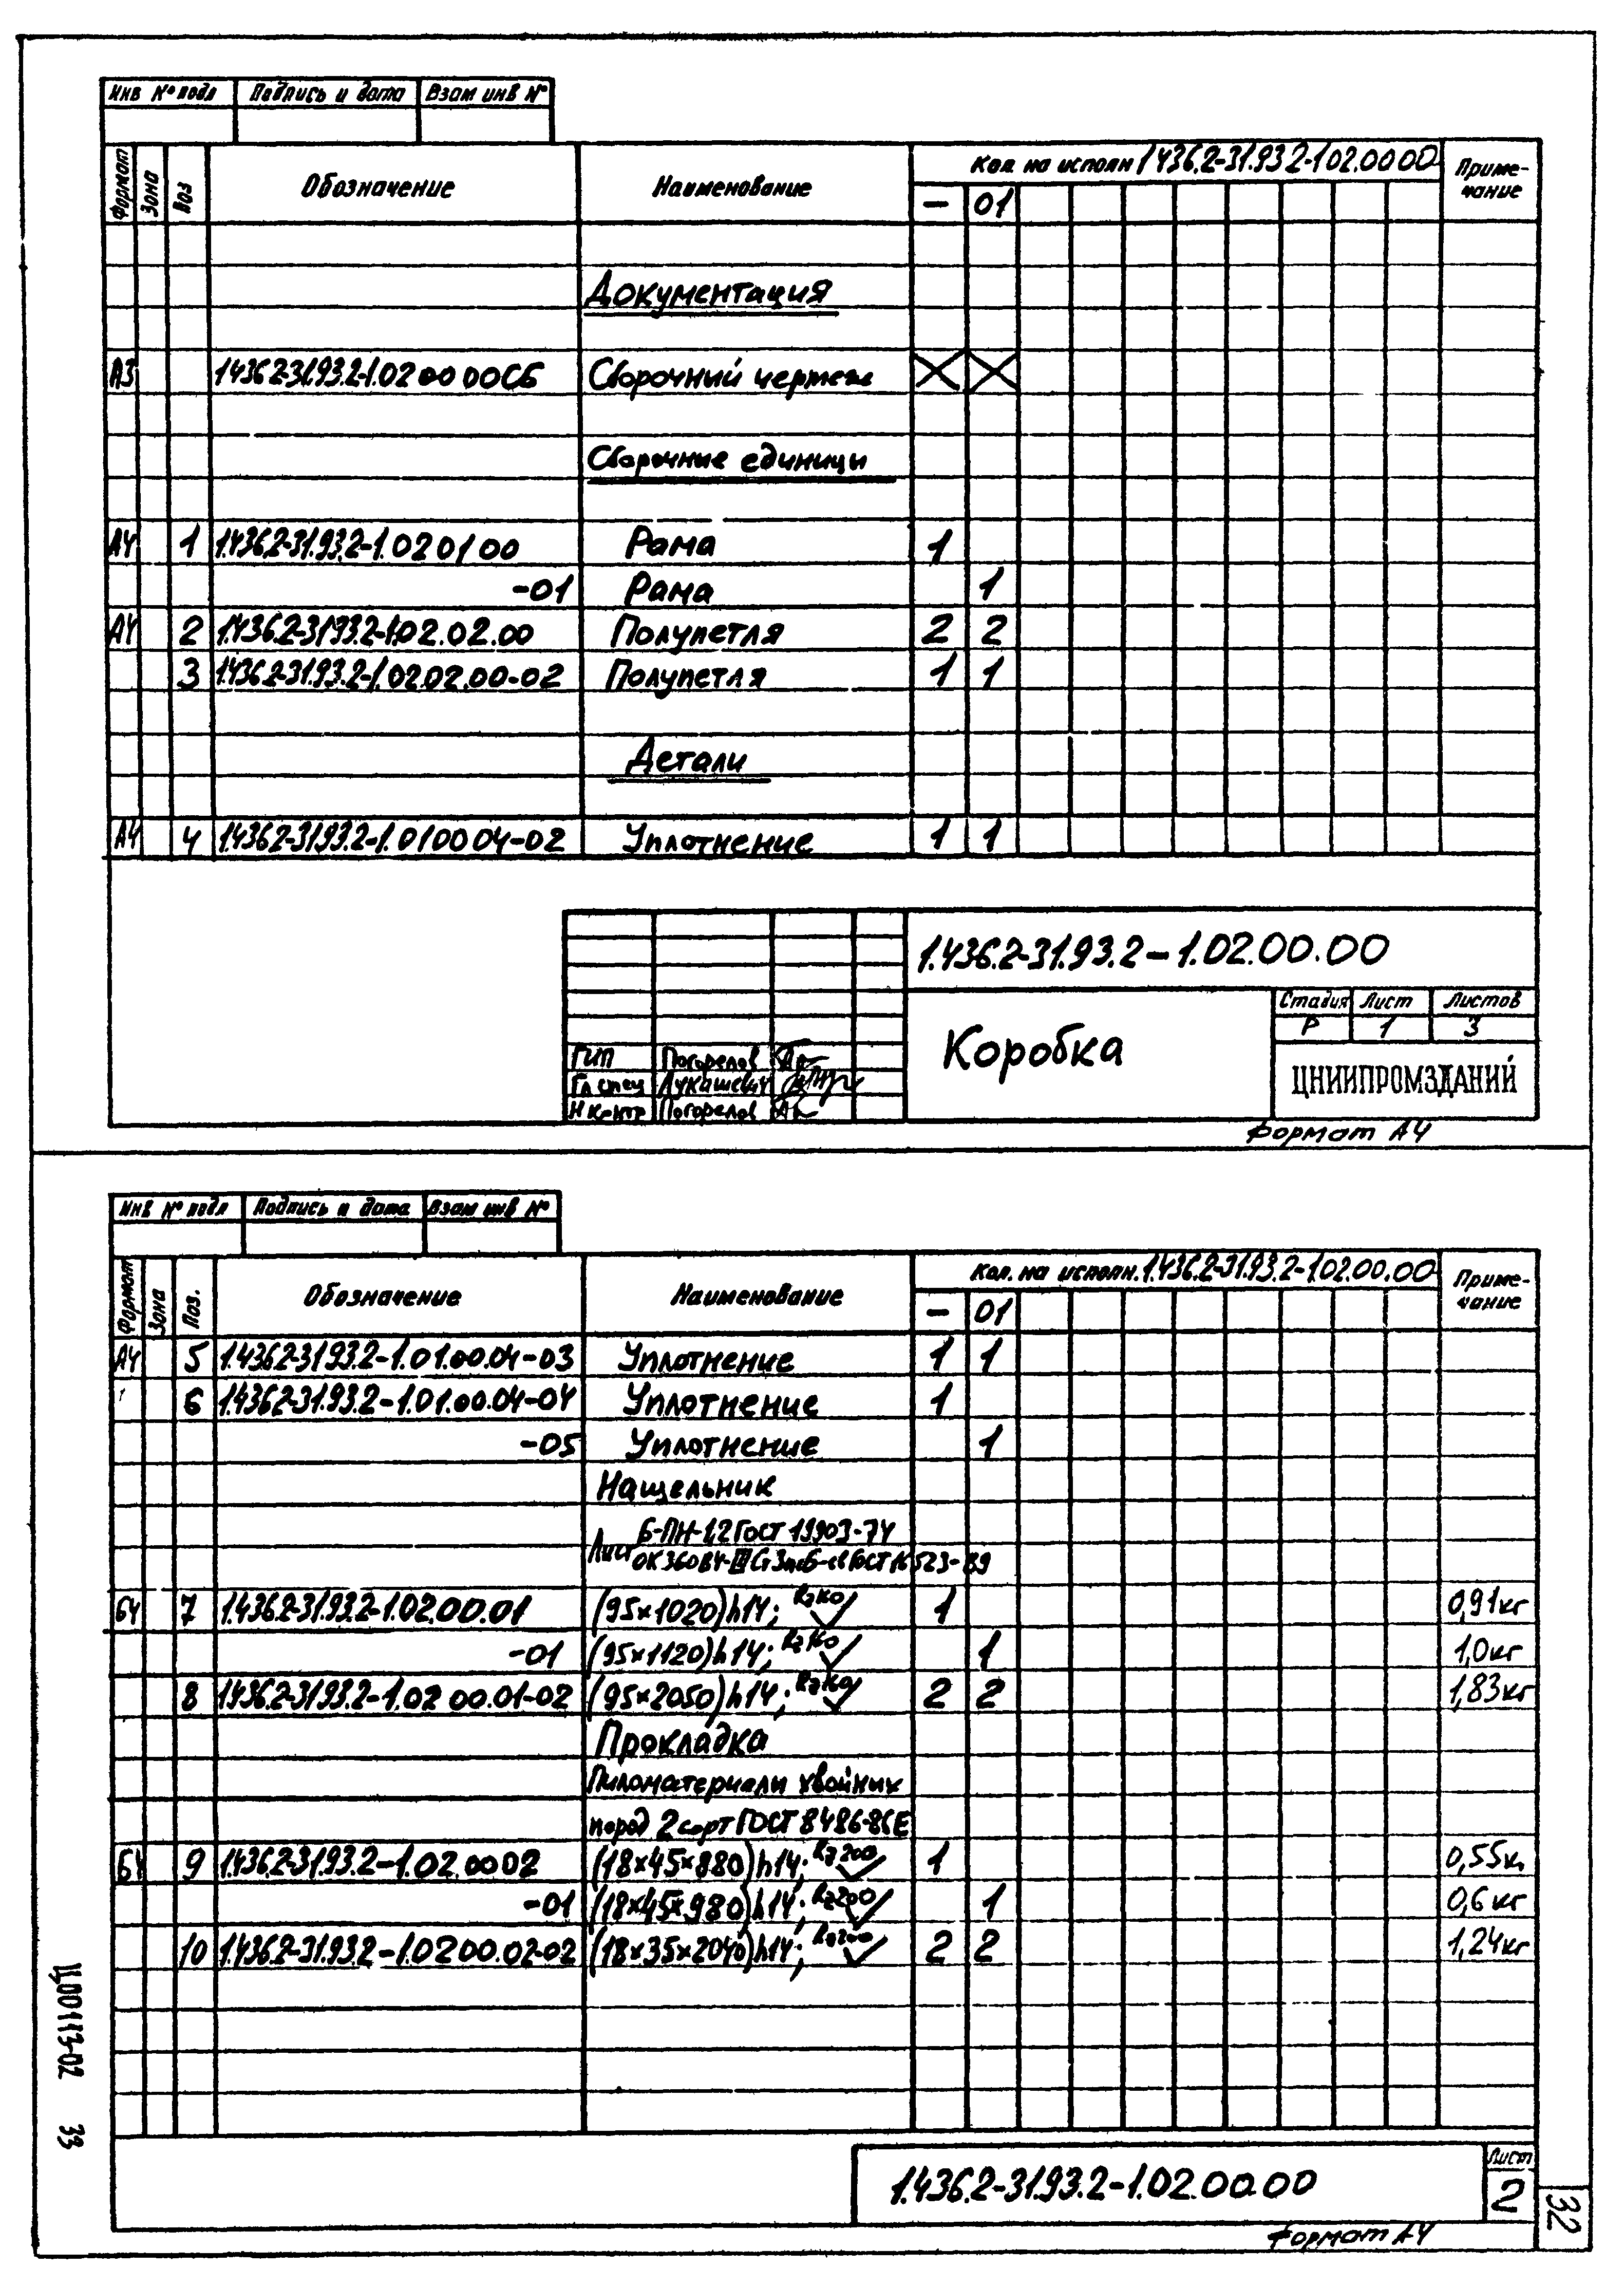 Инв № подл Подпись и дата Взам инв №
Формат Зона Поз Обозначение Наименование Кол на исполн 1.436.2-31.93.2-1.02.00.00 Приме-
чание
— 01
Документация
А3 1.436.2-31.93.2-1.02 00 00СБ Сборочный чертеж
Сборочные единицы
А4 1 1.436.2-31.93.2-1.02 01 00 Рама 1
-01 Рама 1
А4 2 1.436.2-31.93.2-1.02.02.00 Полупетля 2 2
3 1.436.2-31.93.2-1.02.02.00-02 Полупетля 1 1
Детали
А4 4 1.436.2-31.93.2-1.01 00 04-02 Уплотнение 1 1
1.436.2-31.93.2-1.02.00.00
Коробка
Стадия Лист Листов
Р 1 3
ЦНИИПРОМЗДАНИЙ
ГИП Погорелов
Гл спец Лукашевич
Н контр Погорелов
Формат А4
Инв № подл Подпись и дата Взам инв №
Формат Зона Поз. Обозначение Наименование Кол. на исполн. 1.436.2-31.93.2-1.02.00.00 Приме-
чание
— 01
А4 5 1.436.2-31.93.2-1.01.00.04-03 Уплотнение 1 1
6 1.436.2-31.93.2-1.01.00.04-04 Уплотнение 1
-05 Уплотнение 1
Нащельник
Лист Б-ПН-1,2 ГОСТ 19903-74
ОК360В4-III Ст3пс5-св ГОСТ 16523-89
БЧ 7 1.436.2-31.93.2-1.02.00.01 (95×1020)h14; 1 0,91кг
-01 (95×1120)h14; 1 1,0кг
8 1.436.2-31.93.2-1.02 00.01-02 (95×2050)h14; 2 2 1,83кг
Прокладка
Пиломатериали хвойних
пород 2 сорт ГОСТ 8486-86Е
БЧ 9 1.436.2-31.93.2-1.02.00 02 (18×45×880)h14; Rz200 1 0,55к.
-01 (18×45×980)h14; Rz200 1 0,6кг
10 1.436.2-31.93.2-1.02 00.02-02 (18×35×2040)h14; Rz200 2 2 1,24кг
1.436.2-31.93.2-1.02.00.00
Лист
2
Формат А4
Ц00113-02 33
32